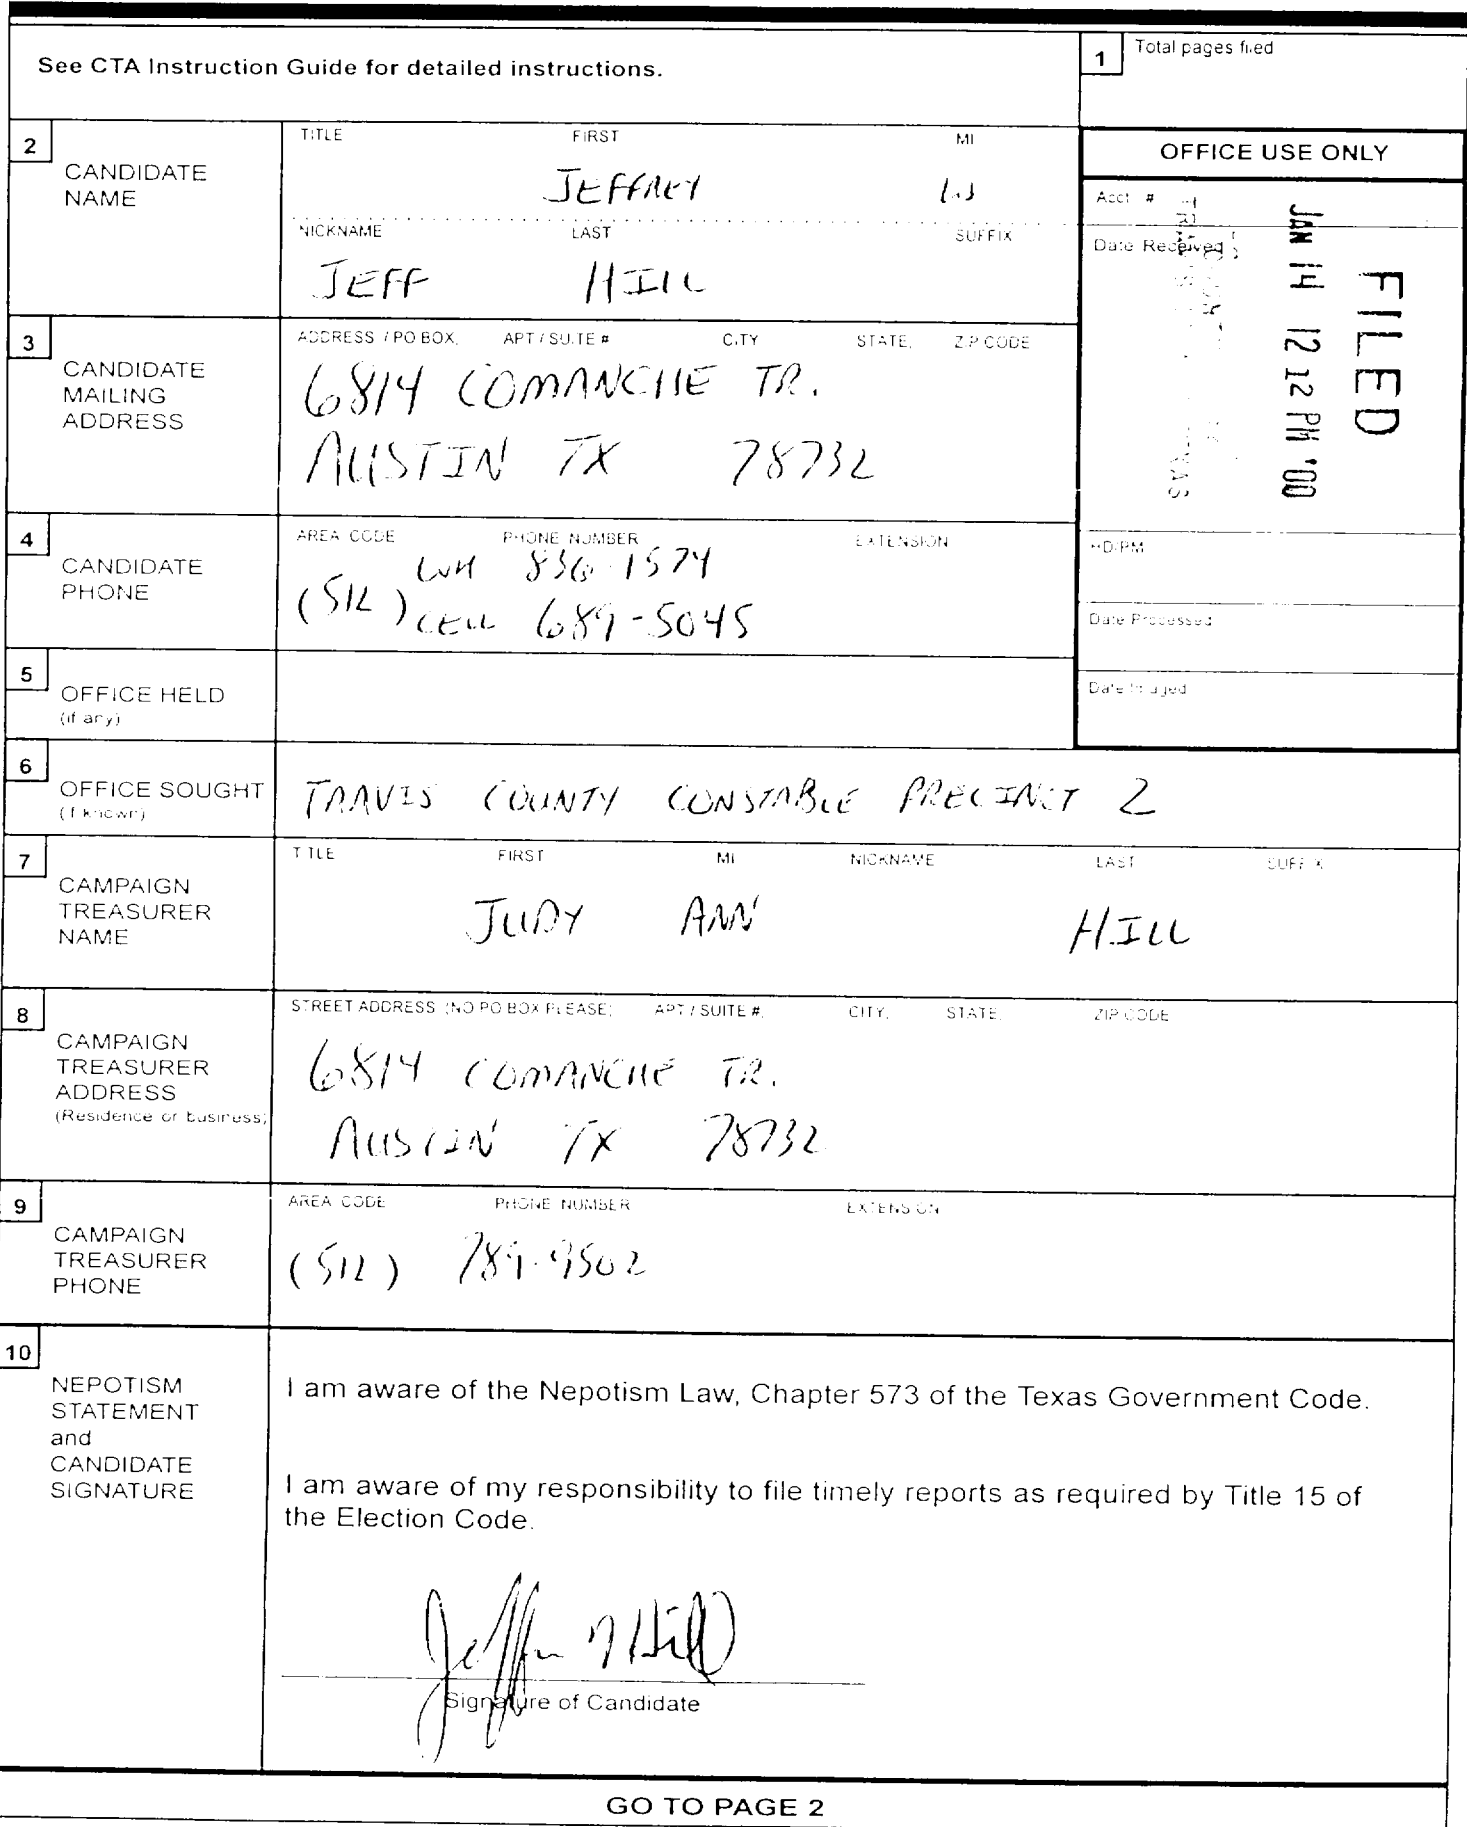 See CTA Instruction Guide for detailed instructions.
1 Total pages filed
2 CANDIDATE NAME
TITLE FIRST MI
JEFFREY W
NICKNAME LAST SUFFIX
JEFF HILL
OFFICE USE ONLY
Acct #
Date Received
FILED
JAN 14 12 12 PM '00
HD/PM
Date Processed
Date Imaged
3 CANDIDATE MAILING ADDRESS
ADDRESS / PO BOX, APT / SUITE # CITY STATE, ZIP CODE
6814 COMANCHE TR.
AUSTIN TX 78732
4 CANDIDATE PHONE
AREA CODE PHONE NUMBER EXTENSION
WK 836-1574
(512) CELL 689-5045
5 OFFICE HELD
(if any)
6 OFFICE SOUGHT
(if known)
TRAVIS COUNTY CONSTABLE PRECINCT 2
7 CAMPAIGN TREASURER NAME
TITLE FIRST MI NICKNAME LAST SUFFIX
JUDY ANN HILL
8 CAMPAIGN TREASURER ADDRESS
(Residence or business)
STREET ADDRESS (NO PO BOX PLEASE) APT / SUITE #, CITY, STATE, ZIP CODE
6814 COMANCHE TR.
AUSTIN TX 78732
9 CAMPAIGN TREASURER PHONE
AREA CODE PHONE NUMBER EXTENSION
(512) 789-9502
10 NEPOTISM STATEMENT and CANDIDATE SIGNATURE
I am aware of the Nepotism Law, Chapter 573 of the Texas Government Code.
I am aware of my responsibility to file timely reports as required by Title 15 of
the Election Code.
Signature of Candidate
GO TO PAGE 2